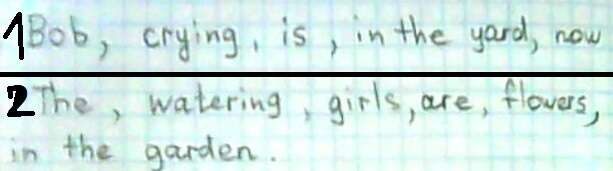 1 Bob, crying, is, in the yard, now
2 The, watering, girls, are, flowers,
in the garden.